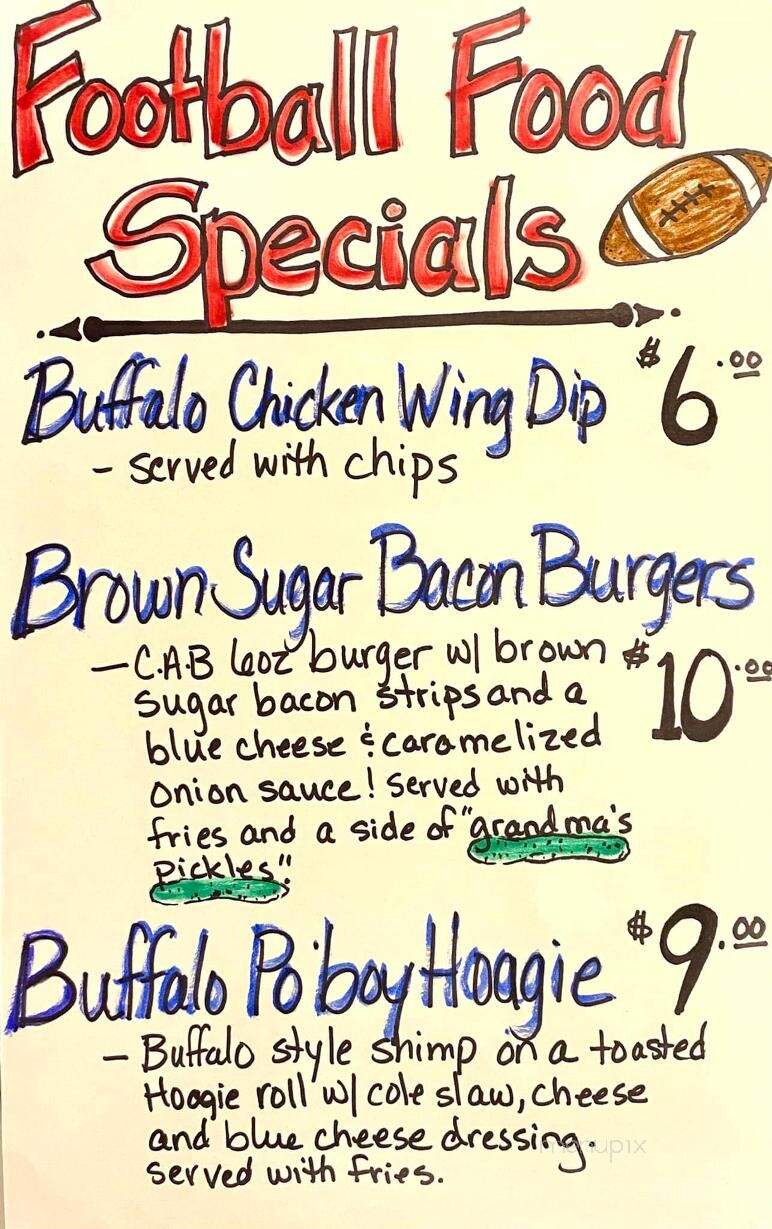 Football Food
Specials
Buffalo Chicken Wing Dip $6.00
- served with chips
Brown Sugar Bacon Burgers
- C.A.B 6oz burger w/ brown $10.00
sugar bacon strips and a
blue cheese & caramelized
onion sauce! served with
fries and a side of "grandma's
pickles".
Buffalo Po'boy Hoagie $9.00
- Buffalo style shimp on a toasted
Hoagie roll w/ cole slaw, cheese
and blue cheese dressing.
served with fries.
menupix